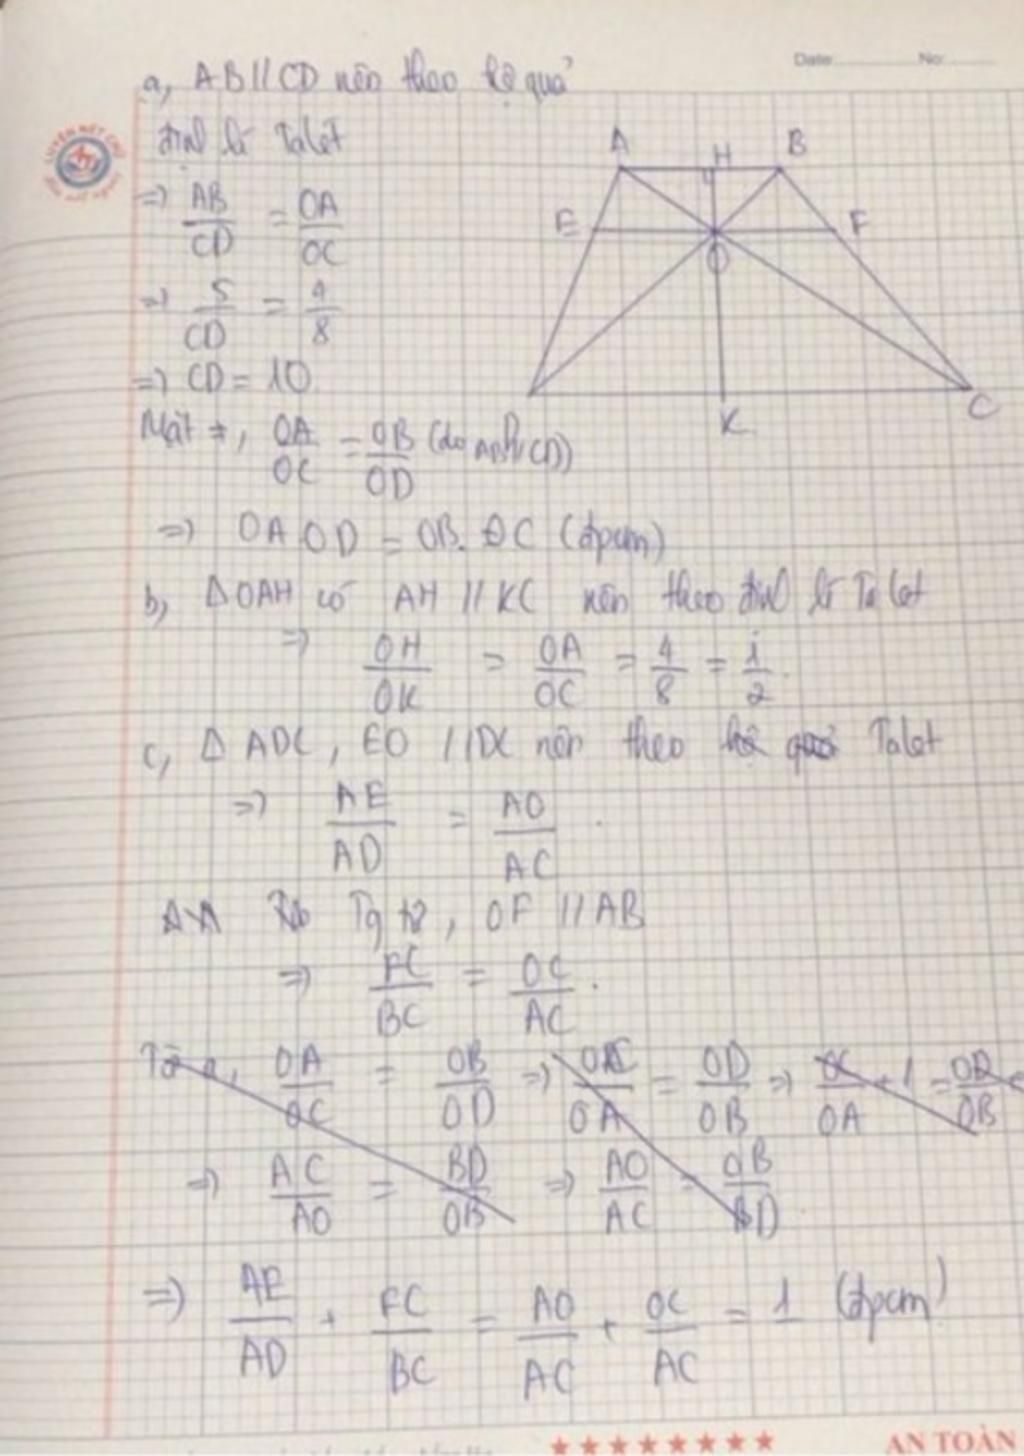 Date: No:
a, AB//CD nên theo hệ quả
định lí Talét
=> AB/CD = OA/OC
=> 5/CD = 4/8
=> CD = 10
Mặt ≠, OA/OC = OB/OD (do AB//CD)
=> OA.OD = OB.OC (đpcm)
A H B
E F
O
K C
b, Δ OAH có AH // KC nên theo định lí Talet
=> OH/OK = OA/OC = 4/8 = 1/2.
c, Δ ADC, EO // DC nên theo hệ quả Talet
=> AE/AD = AO/AC.
Tg tự, OF // AB
=> FC/BC = OC/AC.
Từ a, OA/OC = OB/OD => OC/OA = OD/OB =>
=> AC/AO = BD/OB => AO/AC = OB/BD
=> AE/AD + FC/BC = AO/AC + OC/AC = 1 (đpcm)
AN TOÀN